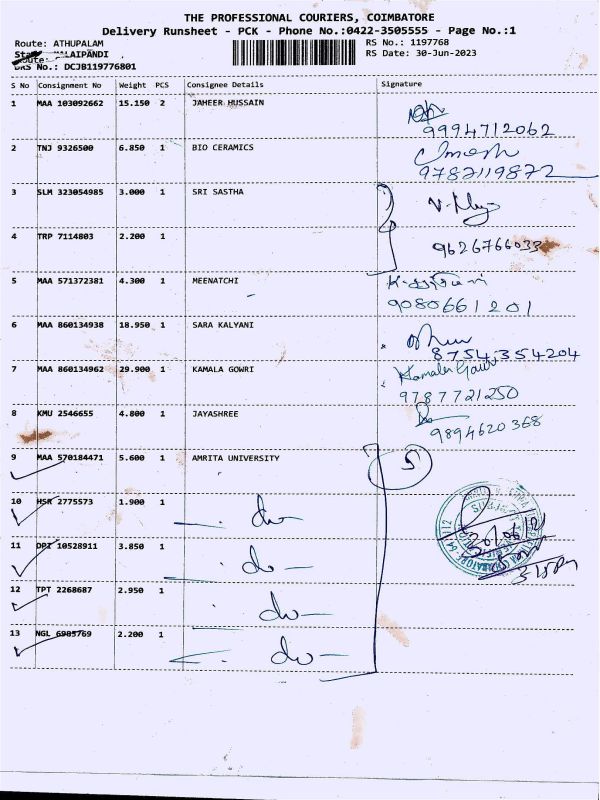 THE PROFESSIONAL COURIERS, COIMBATORE
Delivery Runsheet - PCK - Phone No.:0422-3505555 - Page No.:1
Route: ATHUPALAM
RS No.: 1197768
RS Date: 30-Jun-2023
DRS No.: DCJB119776801
S No Consignment No Weight PCS Consignee Details Signature
1 MAA 103092662 15.150 2 JAHEER HUSSAIN
9994712062
2 TNJ 9326500 6.850 1 BIO CERAMICS
9787119872
3 SLM 323054985 3.000 1 SRI SASTHA
4 TRP 7114803 2.200 1
9626766033
5 MAA 571372381 4.300 1 MEENATCHI
9080661201
6 MAA 860134938 18.950 1 SARA KALYANI
8754354204
7 MAA 860134962 29.900 1 KAMALA GOWRI
Kamala Gowri
9787721250
8 KMU 2546655 4.800 1 JAYASHREE
9894620368
9 MAA 570184471 5.600 1 AMRITA UNIVERSITY
5
10 HSR 2775573 1.900 1 do
11 DPI 10528911 3.850 1 do
12 TPT 2268687 2.950 1 do
13 NGL 6985769 2.200 1 do